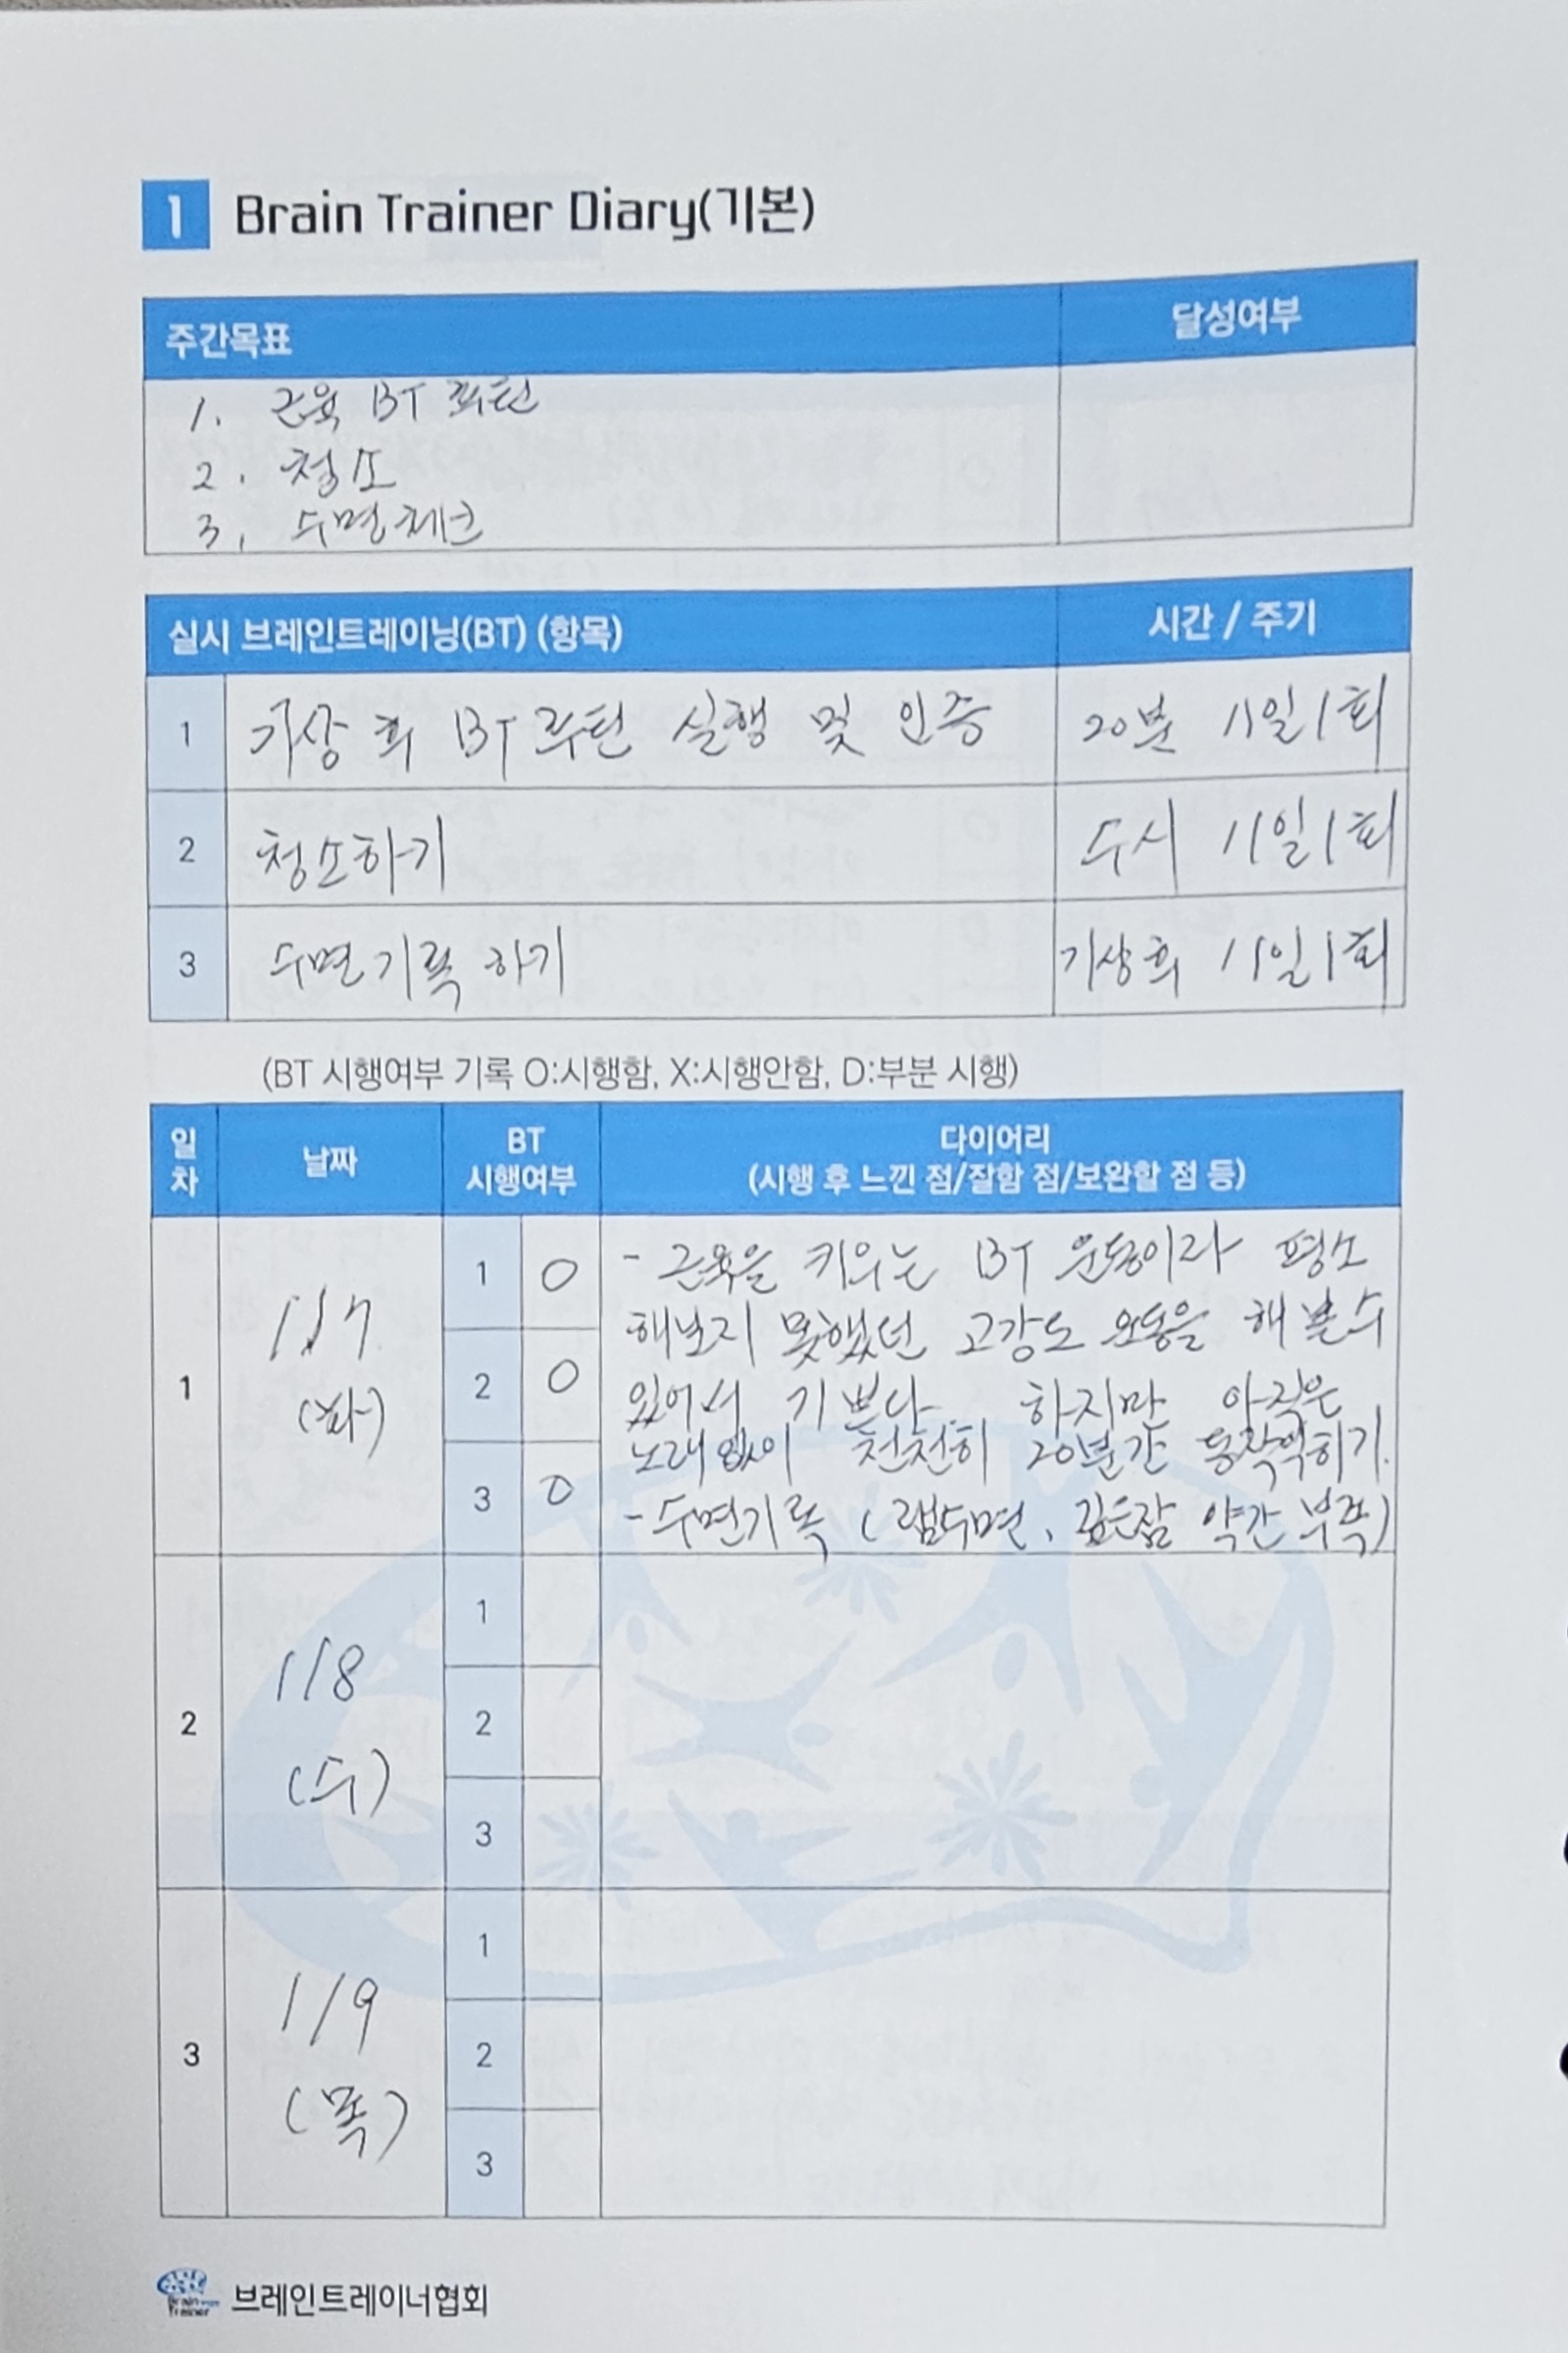 1 Brain Trainer Diary(기본)
주간목표 달성여부
1. 근육 BT 루틴
2. 청소
3. 수면체크
실시 브레인트레이닝(BT) (항목) 시간 / 주기
1 기상 후 BT 루틴 실행 및 인증 20분 1일1회
2 청소하기 수시 1일1회
3 수면기록 하기 기상후 1일1회
(BT 시행여부 기록 O:시행함, X:시행안함, D:부분 시행)
일차 날짜 BT 시행여부 다이어리
(시행 후 느낀 점/잘함 점/보완할 점 등)
1 1/7 (화)
1 O - 근육을 키우는 BT 운동이라 평소
해보지 못했던 고강도 운동을 해 볼 수
2 O 있어서 기쁘다. 하지만 아직은
노래없이 천천히 20분간 동작익히기.
3 O - 수면기록 (램수면, 깊은잠 약간 부족)
2 1/8 (수)
1
2
3
3 1/9 (목)
1
2
3
Brain Trainer 브레인트레이너협회